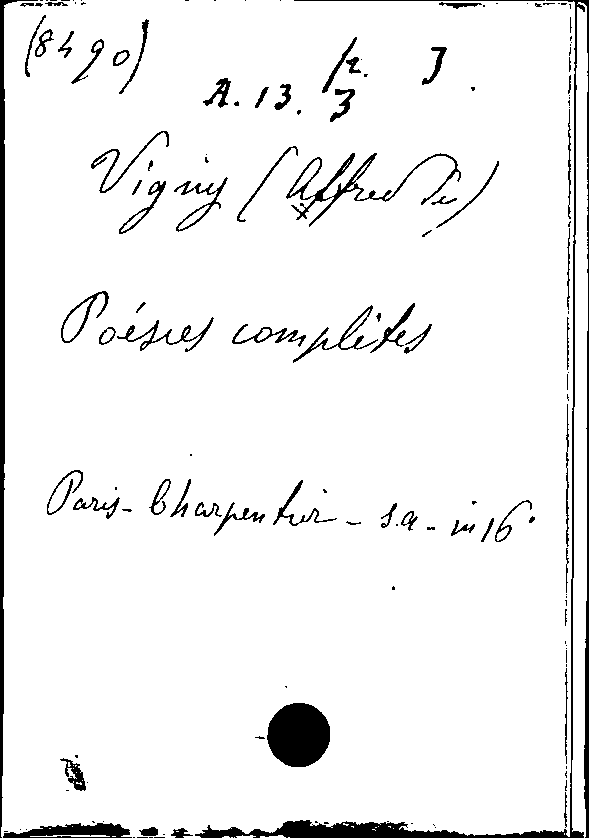 (8490)
A. 13. /2. 3 3
Vigny (Alfred de)
Poésies complètes
Paris - Charpentier - s.a - in 16°